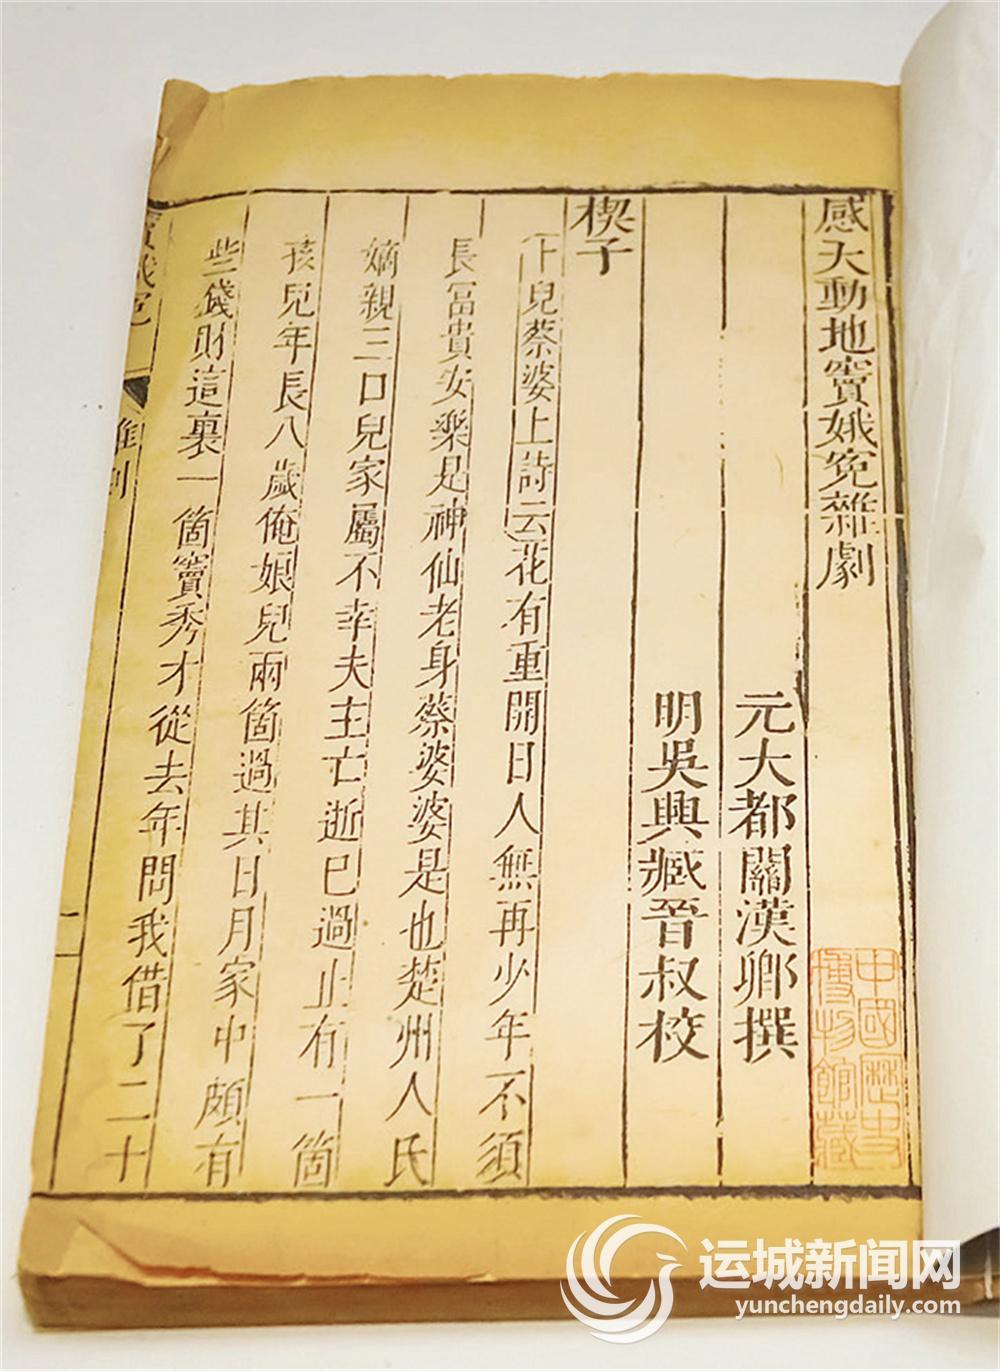 感天動地竇娥冤雜劇
元大都關漢卿撰
明吳興臧晉叔校
楔子
卜兒蔡婆上詩云花有重開日人無再少年不須
長富貴安樂是神仙老身蔡婆婆是也楚州人氏
嫡親三口兒家屬不幸夫主亡逝已過止有一箇
孩兒年長八歲俺娘兒兩箇過其日月家中頗有
些錢財這裏一箇竇秀才從去年問我借了二十
竇娥冤
雜劇
一
中國歷史
博物館藏
运城新闻网
yunchengdaily.com